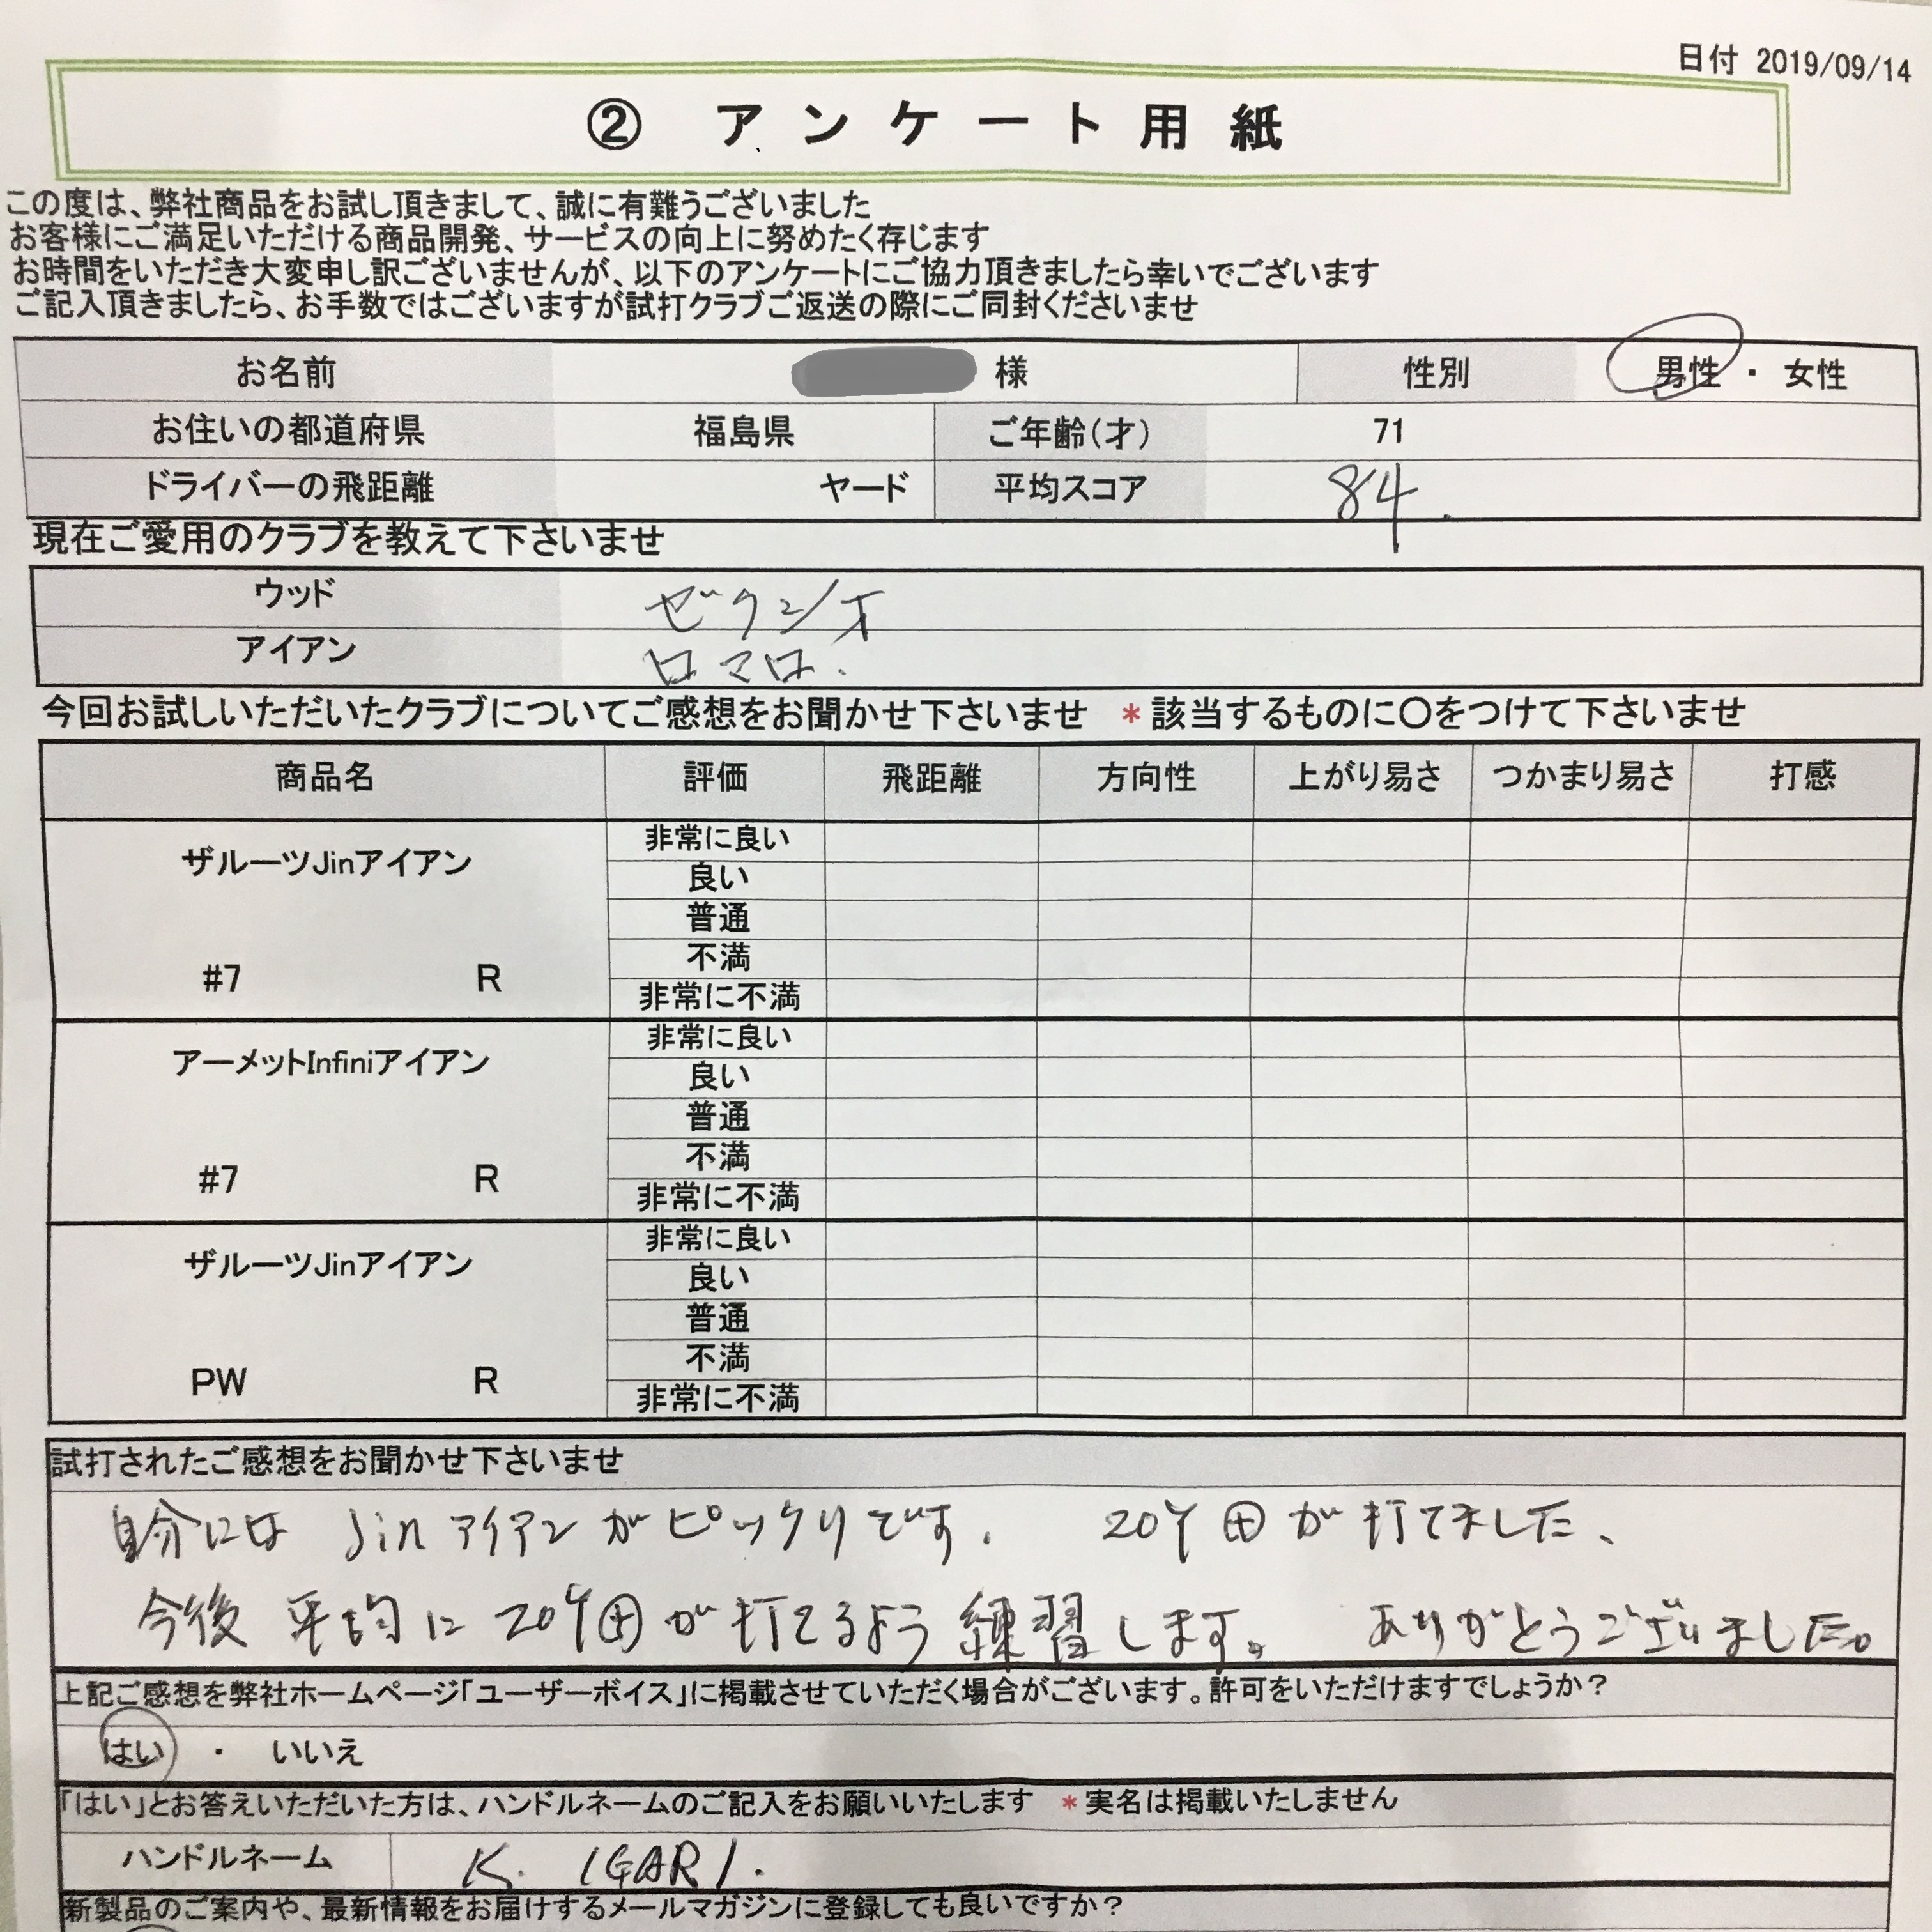 日付 2019/09/14
② アンケート用紙
この度は、弊社商品をお試し頂きまして、誠に有難うございました
お客様にご満足いただける商品開発、サービスの向上に努めたく存じます
お時間をいただき大変申し訳ございませんが、以下のアンケートにご協力頂きましたら幸いでございます
ご記入頂きましたら、お手数ではございますが試打クラブご返送の際にご同封くださいませ
お名前 様 性別 男性 ・ 女性
お住いの都道府県 福島県 ご年齢(才) 71
ドライバーの飛距離 ヤード 平均スコア 84.
現在ご愛用のクラブを教えて下さいませ
ウッド ゼクシオ
アイアン ロマロ.
今回お試しいただいたクラブについてご感想をお聞かせ下さいませ *該当するものに〇をつけて下さいませ
商品名 評価 飛距離 方向性 上がり易さ つかまり易さ 打感
ザルーツJinアイアン
#7 R
非常に良い
良い
普通
不満
非常に不満
アーメットInfiniアイアン
#7 R
非常に良い
良い
普通
不満
非常に不満
ザルーツJinアイアン
PW R
非常に良い
良い
普通
不満
非常に不満
試打されたご感想をお聞かせ下さいませ
自分には Jinアイアンがピックリです. 20Y ㊉が打てました、
今後平均に20Y㊉が打てるよう練習します。 ありがとうございました。
上記ご感想を弊社ホームページ「ユーザーボイス」に掲載させていただく場合がございます。許可をいただけますでしょうか?
はい ・ いいえ
「はい」とお答えいただいた方は、ハンドルネームのご記入をお願いいたします *実名は掲載いたしません
ハンドルネーム K. IGARI.
新製品のご案内や、最新情報をお届けするメールマガジンに登録しても良いですか?